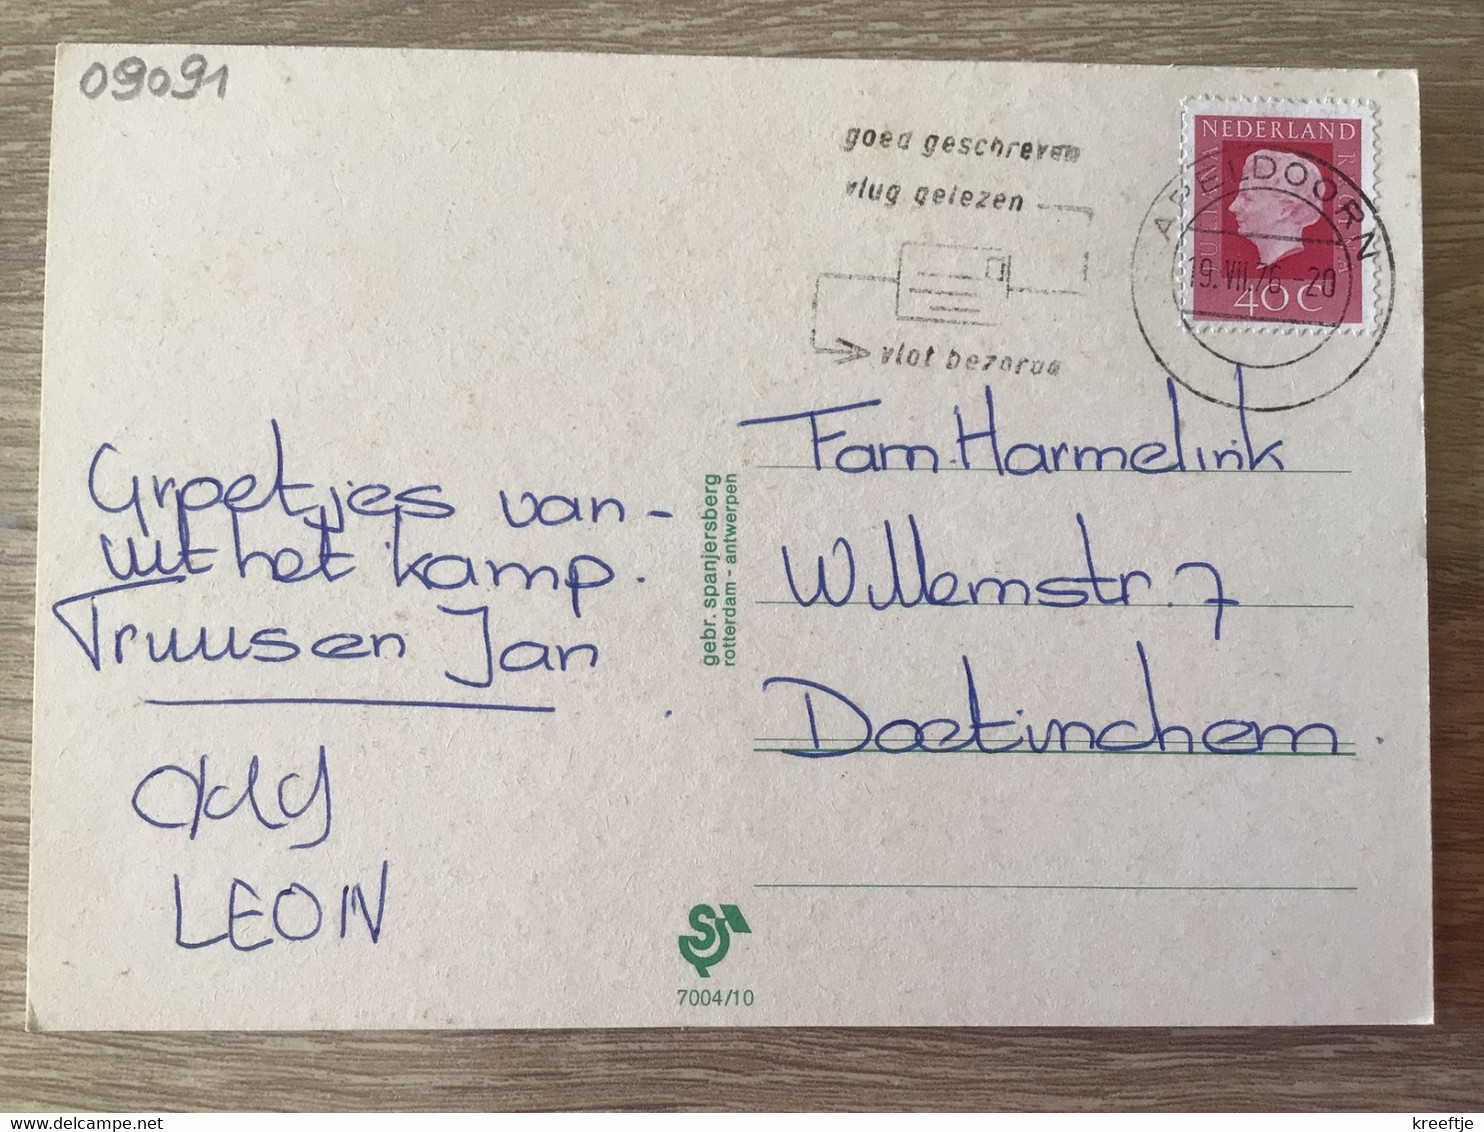 09091
goed geschreven
vlug gelezen
vlot bezorgd
NEDERLAND
JULIANA REGINA
40 C
APELDOORN
19.VII.76.-20
Groetjes van-
uit het kamp.
Truus en Jan
LEON
gebr. spanjersberg
rotterdam - antwerpen
Fam. Harmelink
Willemstr. 7
Doetinchem.
7004/10
kreeftje